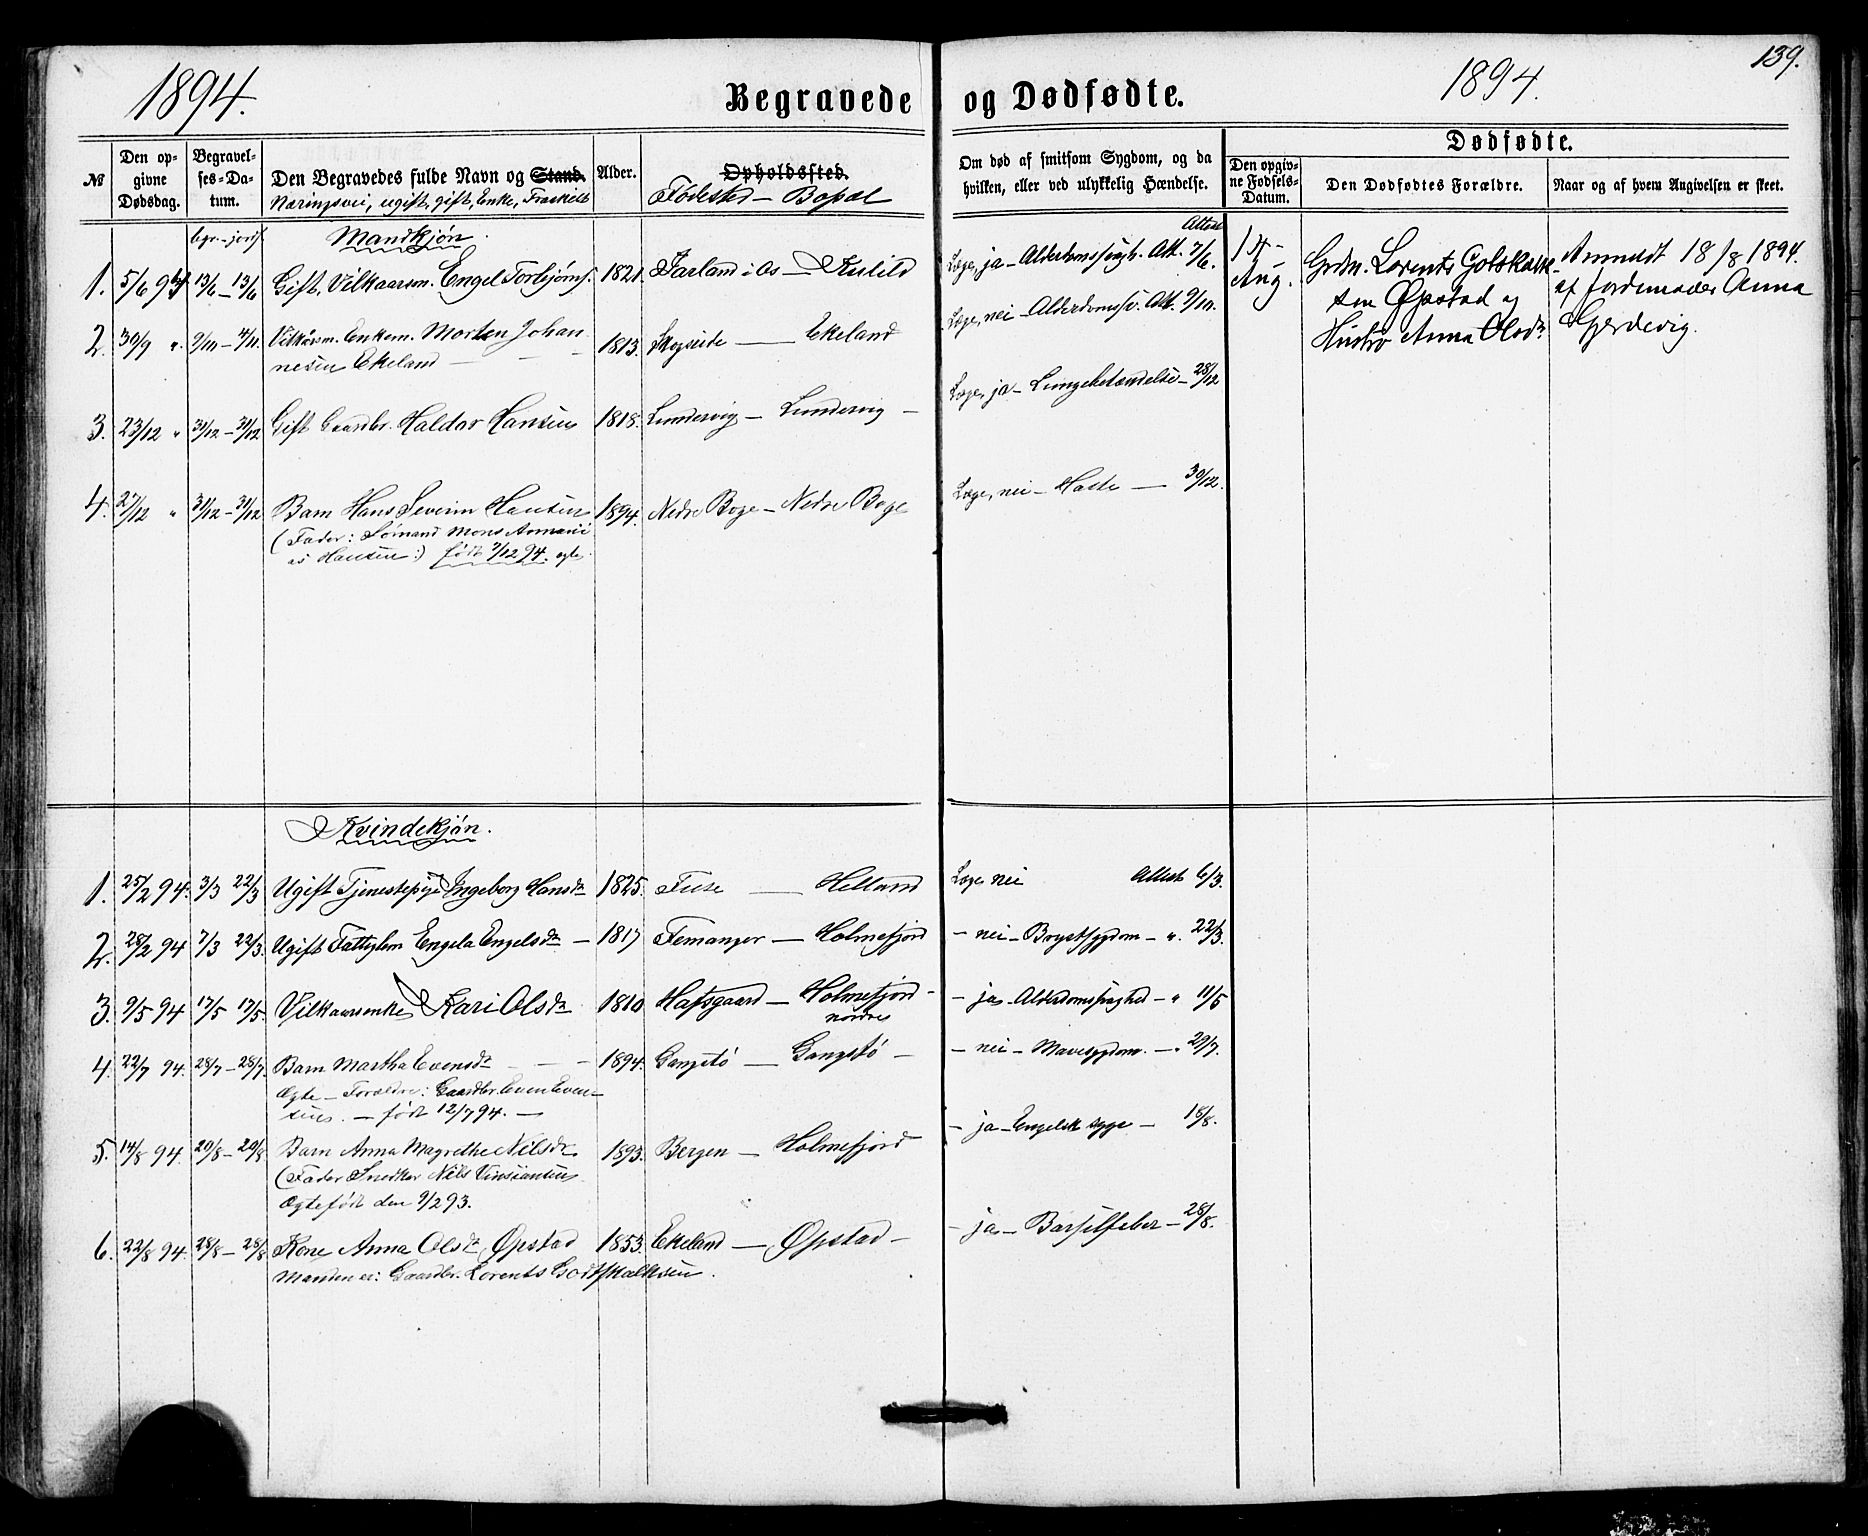 139.
1894. Begravede og Dødfødte. 1894.
№ Den opgivne Dødsdag. Begravelses-Datum. Den Begravedes fulde Navn og Stand. Alder. Opholdssted. Om død af smitsom Sygdom, og da hvilken, eller ved ulykkelig Hændelse. Dødfødte. Den opgivne Fødsels-Datum. Den Dødfødtes Forældre. Naar og af hvem Angivelsen er skeet.
Næringsvei, ugift, gift, Enke, Fraskilt Fødested – Bopæl
begr – jordf. Mandkjøn. Attest
1. 5/6 94 13/6 – 13/6 Gift, Vilkaarsm. Engel Torbjørns. 1821. Farland i Os – Kulild Læge, ja – Alderdomssvagh. Att. 7/6. 14 – Aug. Grdm. Lorents Gotskalk- Anmeldt 18/8 1894.
sen Øpstad og af Jordemoder Anna
Hustro Anna Olsdr. Gjerdevig.
2. 30/9 " 9/10 – 4/11. Vilkårsm. Enkem. Morten Johan- 1813. Skogseide — Ekeland Læge, nei – Alderdomssv. Att. 9/10.
nesen Ekeland —
3. 23/12 " 31/12 – 31/12 Gift Gaardbr. Haldor Hansen 1818. Lundervig – Lundervig – Læge, ja – Lungebetændelse – 28/12
4. 27/12 " 31/12 – 31/12 Barn Hans Severin Hansen 1894. Nedre Boge – Nedre Boge Læge, nei – Hoste — 30/12.
(Fader: Sømand Mons Annani-
as Hansen:) født 7/12 94. ægte.
Kvindekjøn.
1. 25/2 94. 3/3 22/3 Ugift Tjenestepige Ingeborg Hansdr 1825. Fuse — Helland Læge nei Attest 6/3.
2. 28/2 94 7/3 22/3. Ugift Fattiglem Engela Engelsdr – 1817 Femanger — Holmefjord – nei – Brystsygdom – ". 22/3.
3. 9/5 94 17/5 17/5. Vilkaarsenke Kari Olsdr 1810 Hafsgaard – Holmefjord – – ja – Alderdomssvaghed – " 11/5
nordre
4. 22/7 94. 28/7 – 28/7. Barn Martha Evensdr – – 1894. Gangstø — Gangstø – – nei – Mavesygdom. – " 29/7.
Ægte – Forældre: Gaardbr. Even Even-
sen. – født 12/7 94. —
5. 14/8 94. 20/8 – 20/8 Barn Anna Magrethe Nilsdr 1893. Bergen – Holmefjord – ja – Engelsk syge – 18/8.
(Fader Snedker Nils Vinsiantsen
Ægtefødt den 9/2 93.
6. 22/8 94. 28/8 – 28/8 Kone Anna Olsdr Øpstad 1853. Ekeland — Øpstad – – ja – Barselfeber – 28/8.
Manden er: Gaardbr. Lorents Godtskalksen.